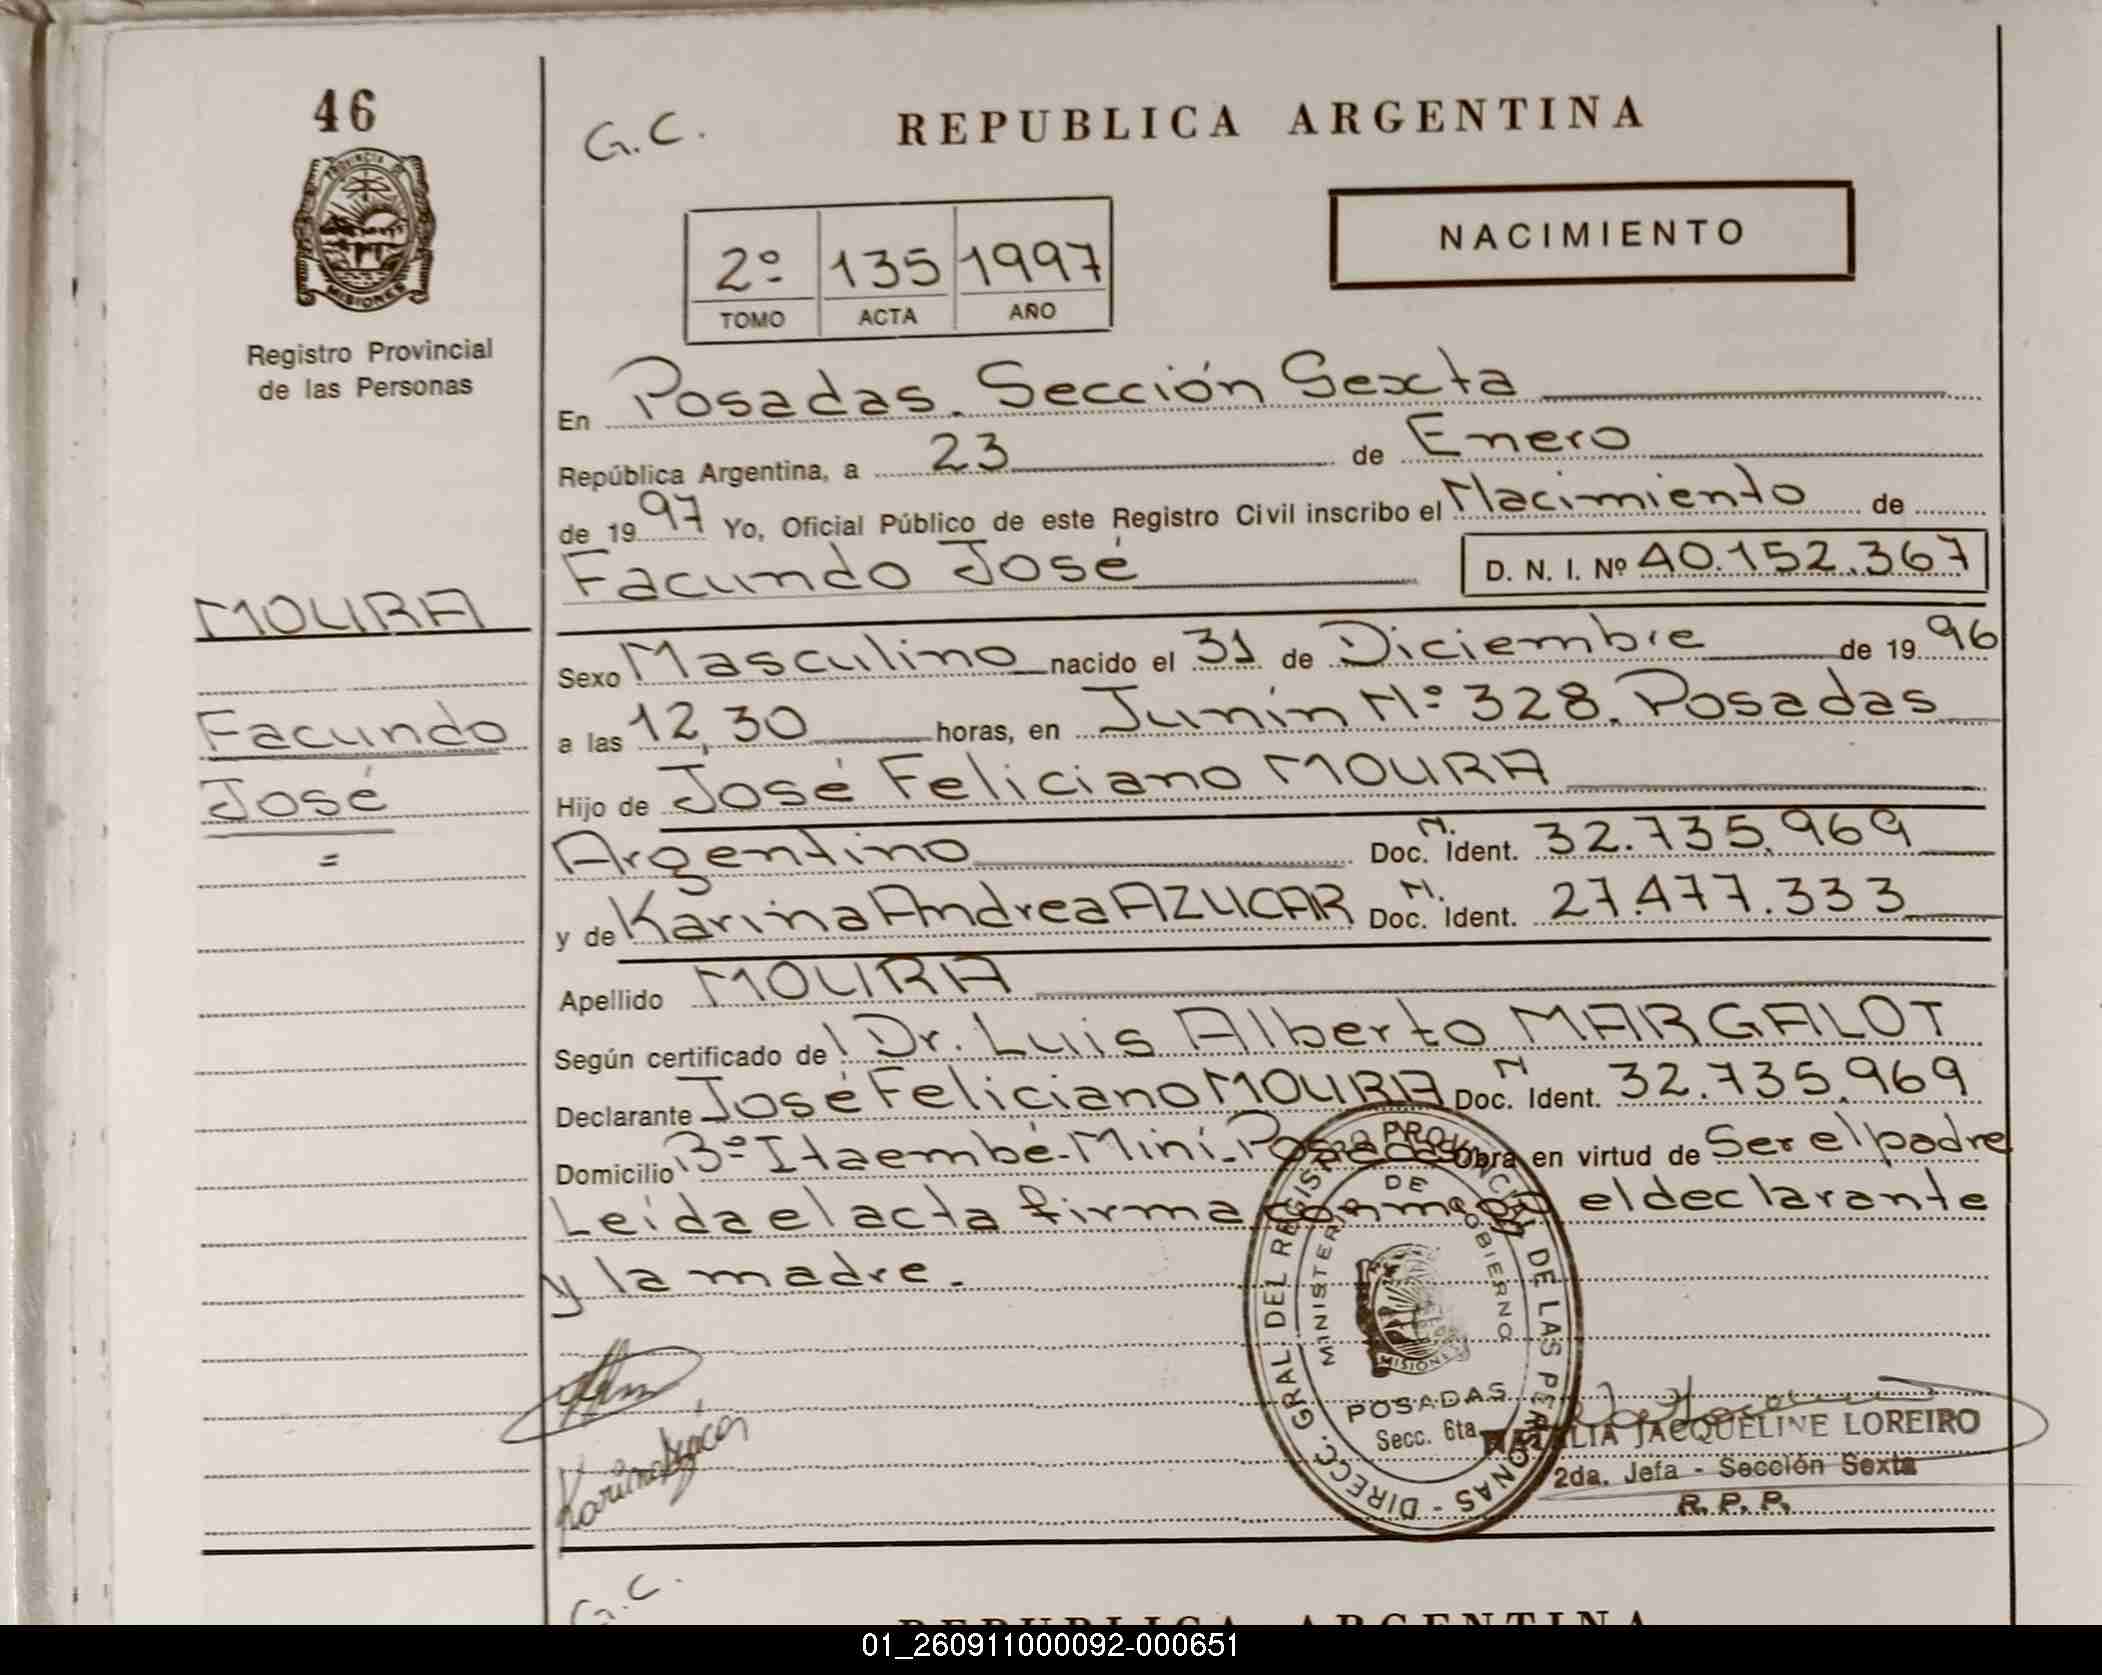 46
G.C.
REPUBLICA ARGENTINA
PROVINCIA DE
MISIONES
Registro Provincial
de las Personas
2º 135 1997
TOMO ACTA AÑO
NACIMIENTO
En Posadas. Sección Sexta
República Argentina, a 23 de Enero
de 1997 Yo, Oficial Público de este Registro Civil inscribo el Nacimiento de
Facundo José
D. N. I. Nº 40.152.367
MOURA
Facundo
José
=
Sexo Masculino nacido el 31 de Diciembre de 1996
a las 12,30 horas, en Junín Nº 328. Posadas
Hijo de José Feliciano MOURA
Argentino Doc. N. Ident. 32.735.969
y de Karina Andrea AZUCAR Doc. N. Ident. 27.477.333
Apellido MOURA
Según certificado de l Dr. Luis Alberto MARGALOT
Declarante José Feliciano MOURA Doc. N Ident. 32.735.969
Domicilio Bº Itaembé-Miní-Posadas Obra en virtud de Ser el padre
Leída el acta firma conmigo el declarante
y la madre.
DIRECC. GRAL DEL REGISTRO PROVINCIAL DE LAS PERSONAS -
MINISTERIO DE GOBIERNO
MISIONES
POSADAS
Secc. 6ta
Karina Azúcar
NATALIA JACQUELINE LOREIRO
2da. Jefa - Sección Sexta
R. P. P.
G.C.
REPUBLICA ARGENTINA
01_260911000092-000651